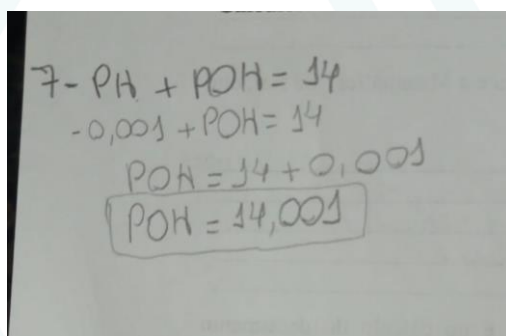 7- PH + POH = 14
-0,001 + POH = 14
POH = 14 + 0,001
POH = 14,001